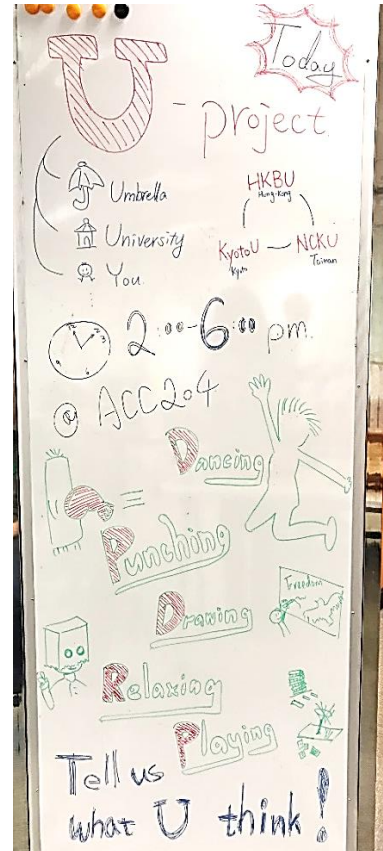 Today
U-project
Umbrella
University
You
HKBU
Hong-Kong
KyotoU
Kyoto
NCKU
Taiwan
2:00-6:00 pm
@ ACC204
Dancing
Punching
Drawing
Freedom
Relaxing
Playing
Tell us
what U think!